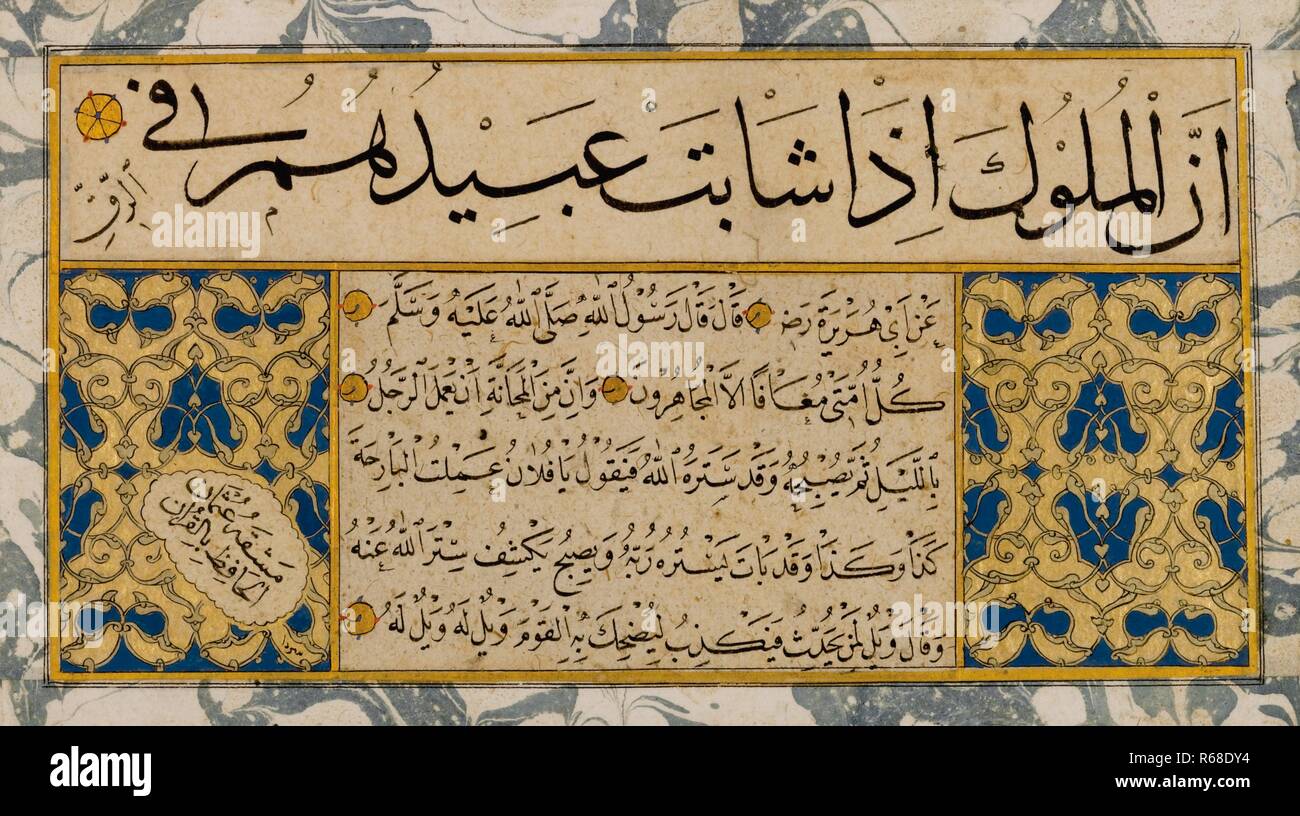 اِنَّ الْمُلُوْكَ اِذَا شَابَتْ عَبِيْدُهُمُ فِي
الرِّقِّ
عَنْ اَبِي هُرَيْرَةَ رَضِ قَالَ قَالَ رَسُوْلُ اللهِ صَلَّى اللهُ عَلَيْهِ وَسَلَّمَ
كُلُّ اُمَّتِي مُعَافًا اِلَّا الْمُجَاهِرُوْنَ وَاِنَّ مِنَ الْمَجَانَةِ اَنْ يَعْمَلَ الرَّجُلُ
بِاللَّيْلِ ثُمَّ يُصْبِحُ وَقَدْ سَتَرَهُ اللهُ فَيَقُوْلُ يَا فُلَانُ عَمِلْتُ الْبَارِحَةَ
كَذَا وَكَذَا وَقَدْ بَاتَ يَسْتُرُهُ رَبُّهُ وَيُصْبِحُ يَكْشِفُ سِتْرَ اللهُ عَنْهُ
وَقَالَ وَيْلٌ لِمَنْ يُحَدِّثُ فَيَكْذِبُ لِيُضْحِكَ بِهِ الْقَوْمَ وَيْلٌ لَهُ وَيْلٌ لَهُ
مشقه عثمان
الحافظ بالقرآن
alamy
Image ID: R68DY4
www.alamy.com